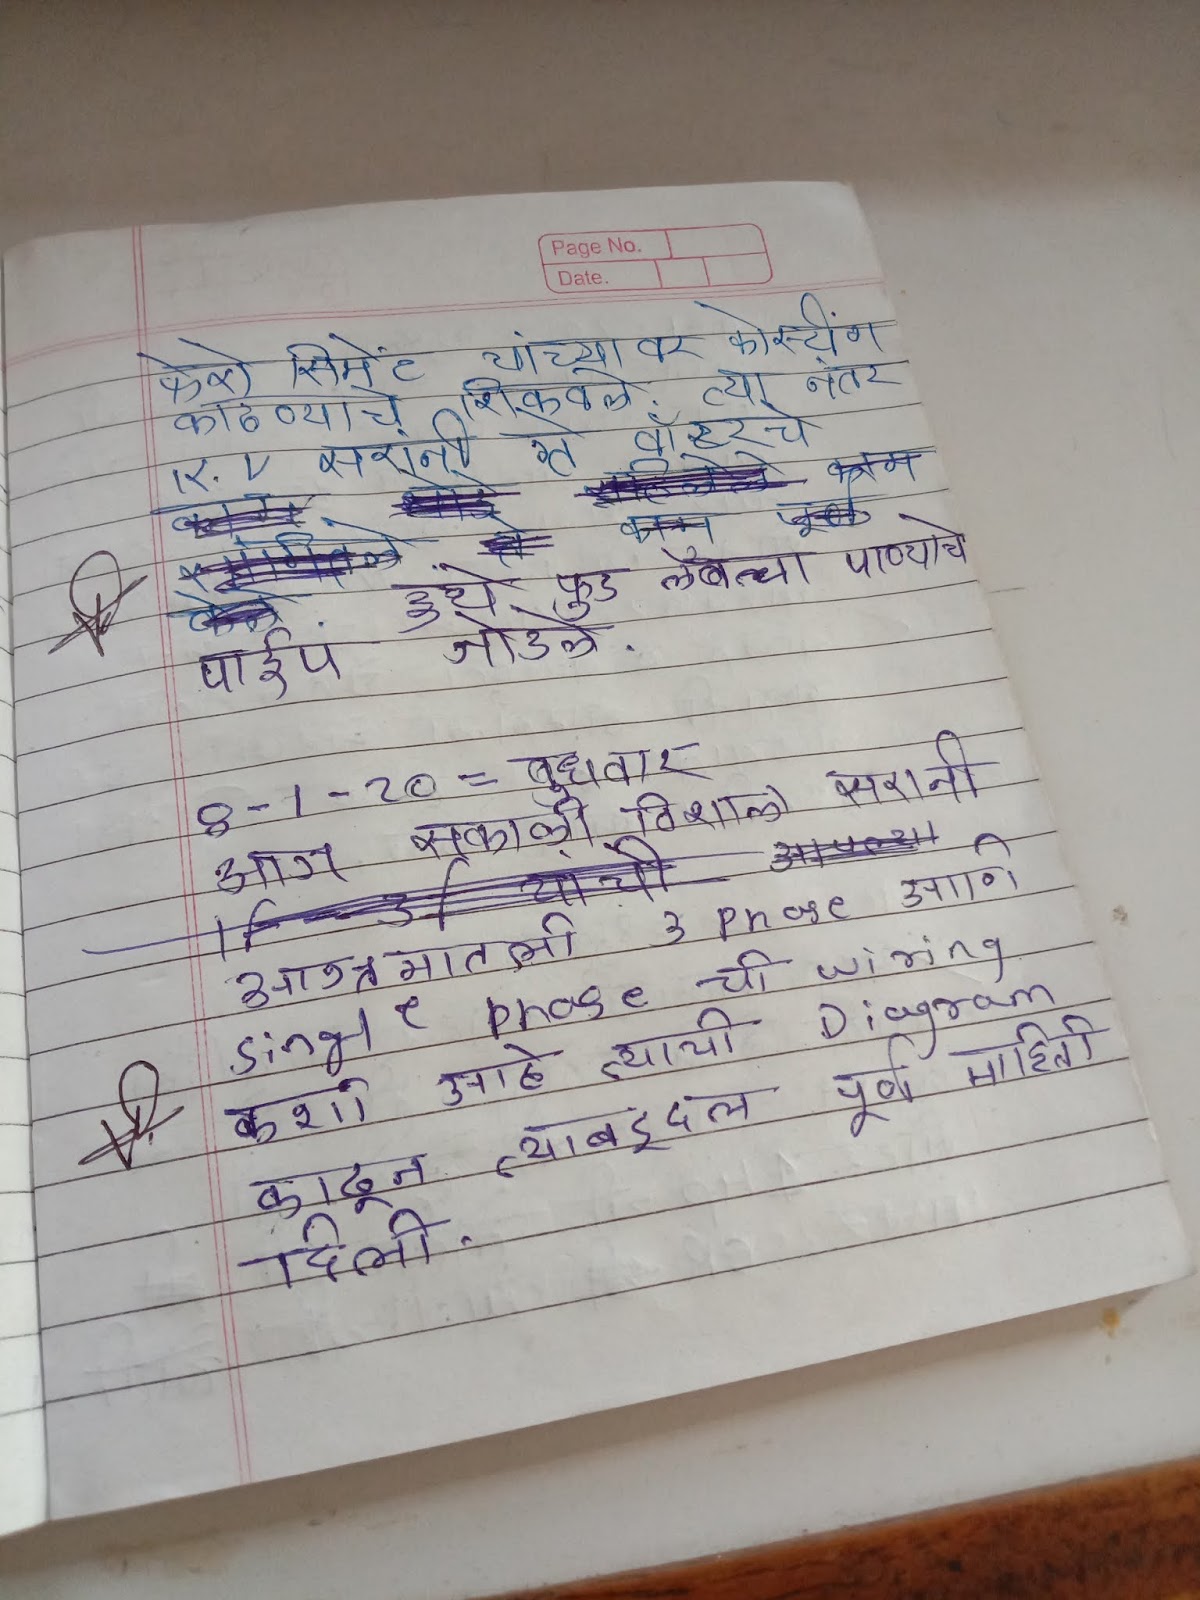 Page No.
Date.
फेरो सिमेंट यांच्या वर कोस्टींग
काढण्याचे शिकवले. त्या नंतर
R.V सरांनी वॉटरचे
काम
काम पूर्ण
केले. इथे फुड लॅबच्या पाण्याचे
पाईप जोडले.
8-1-20 = बुधवार
आज सकाळी विशाल सरानी
यांची आपल्या
आश्रमातली 3 phase आणि
single phase ची wiring
कशी आहे त्याची Diagram
काढून त्याबद्दल पूर्ण माहिती
दिली.